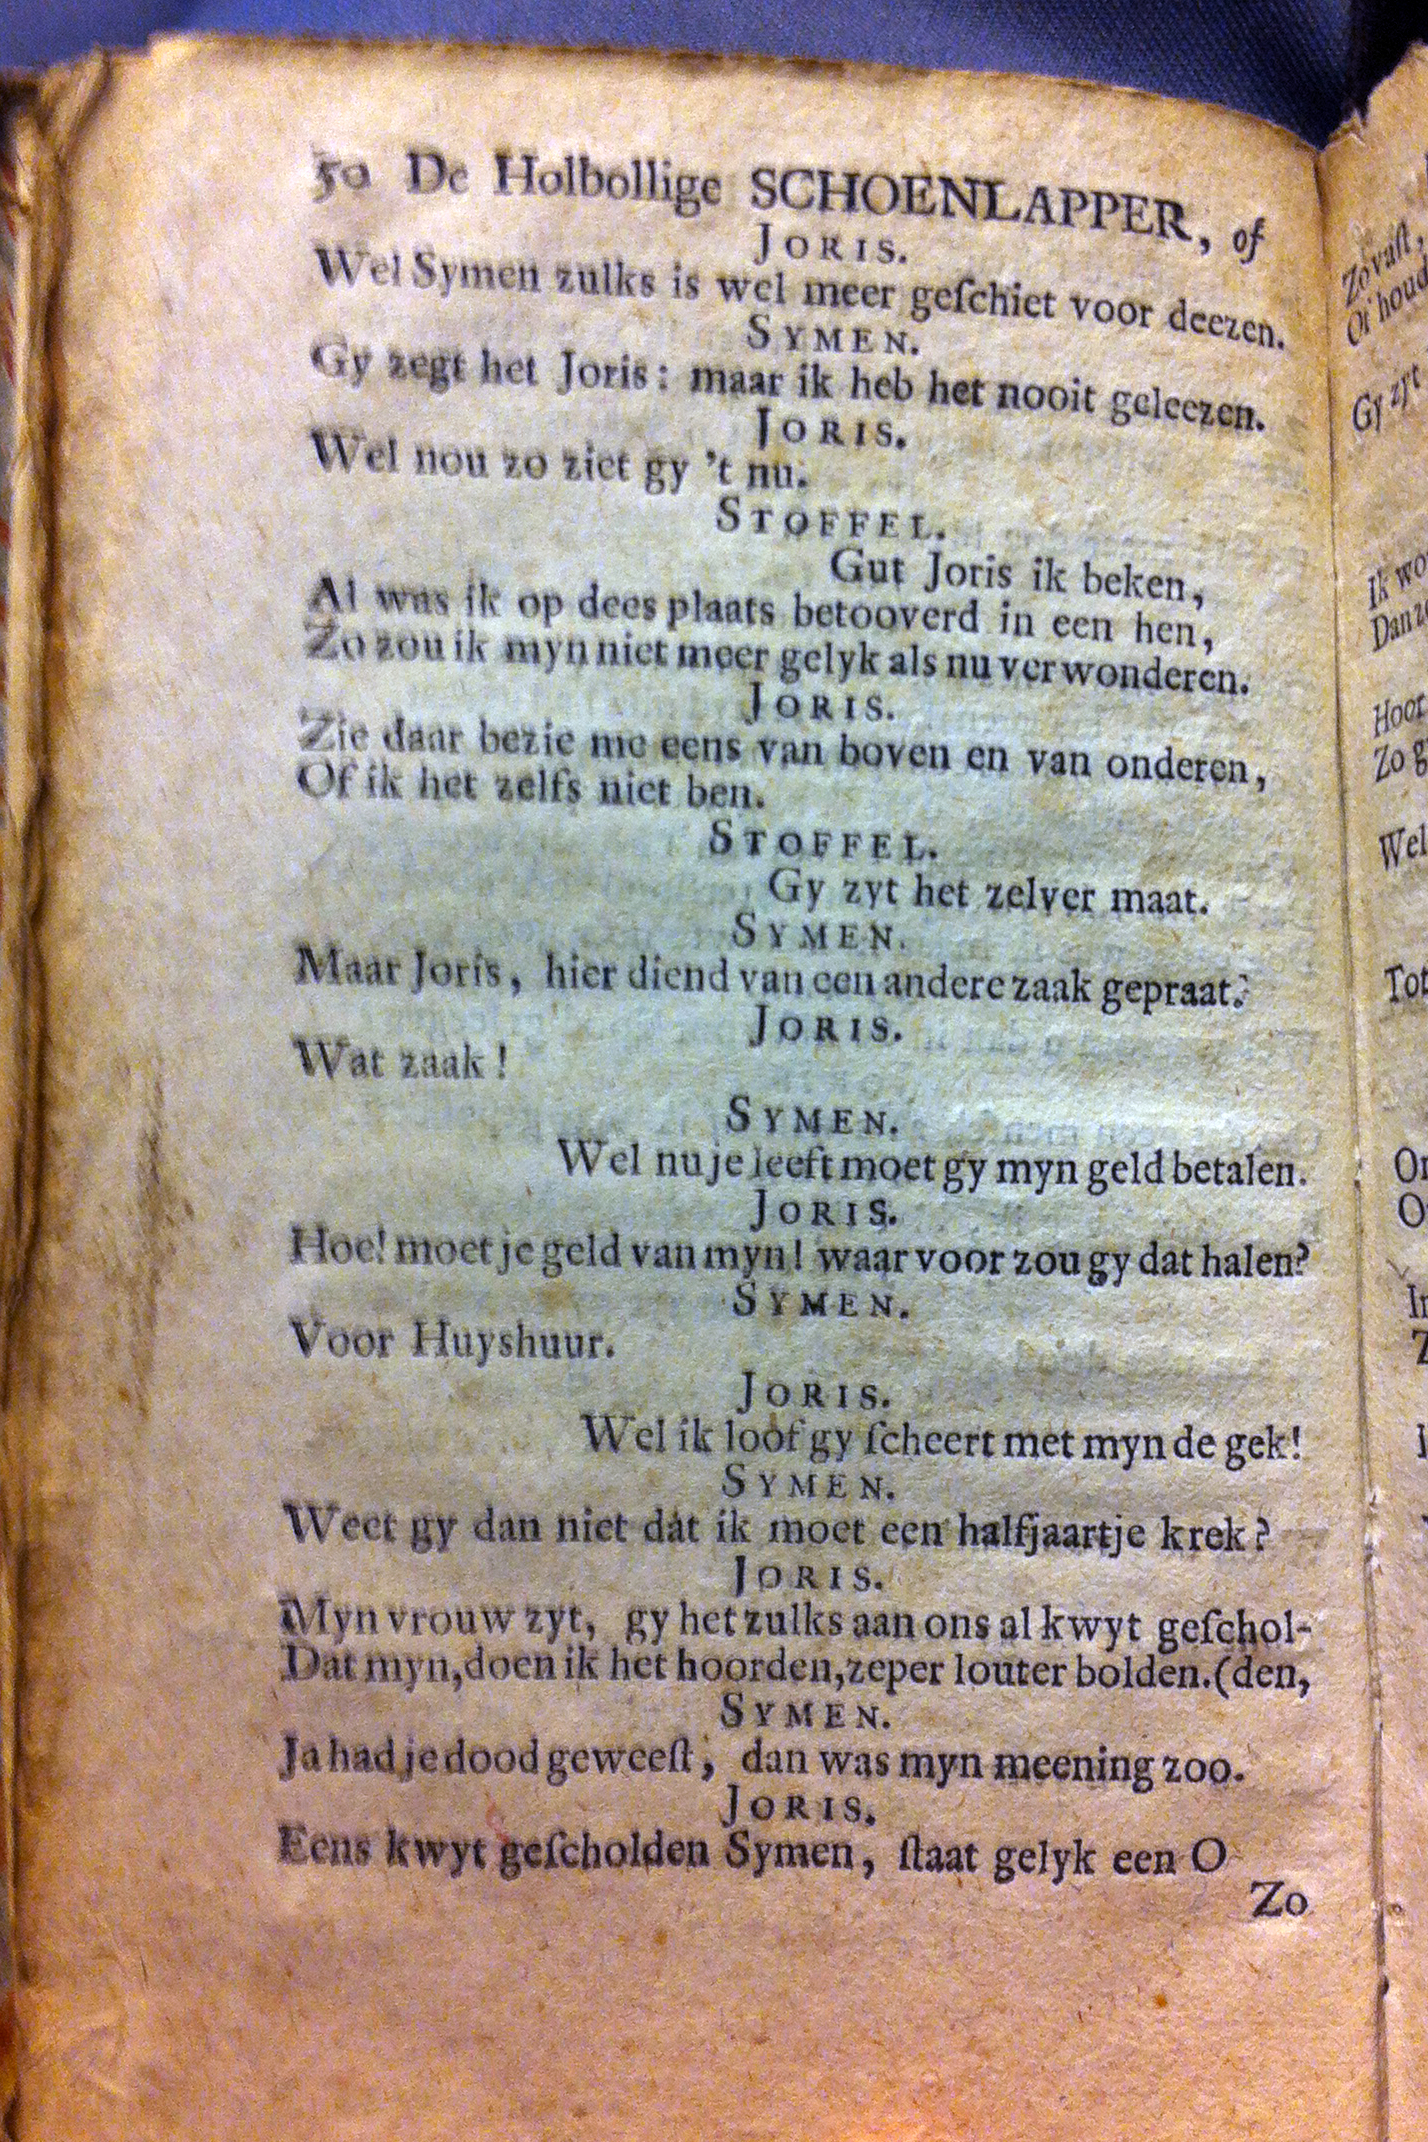 50 De Holbollige SCHOENLAPPER, of
JORIS.
Wel Symen zulks is wel meer geſchiet voor deezen.
SYMEN.
Gy zegt het Joris: maar ik heb het nooit geleezen.
JORIS.
Wel nou zo ziet gy 't nu.
STOFFEL.
Gut Joris ik beken,
Al was ik op dees plaats betooverd in een hen,
Zo zou ik myn niet meer gelyk als nu verwonderen.
JORIS.
Zie daar bezie me eens van boven en van onderen,
Of ik het zelfs niet ben.
STOFFEL.
Gy zyt het zelver maat.
SYMEN.
Maar Joris, hier diend van een andere zaak gepraat.
JORIS.
Wat zaak!
SYMEN.
Wel nu je leeft moet gy myn geld betalen.
JORIS.
Hoe! moet je geld van myn! waar voor zou gy dat halen?
SYMEN.
Voor Huyshuur.
JORIS.
Wel ik loof gy ſcheert met myn de gek!
SYMEN.
Weet gy dan niet dat ik moet een halfjaartje krek?
JORIS.
Myn vrouw zyt, gy het zulks aan ons al kwyt geſchol-
Dat myn, doen ik het hoorden, zeper louter bolden. (den,
SYMEN.
Ja had je dood geweeſt, dan was myn meening zoo.
JORIS.
Eens kwyt geſcholden Symen, ſtaat gelyk een O
Zo
Zo vaſt,
Of houd
Gy zyt
Ik wo
Dan z
Hoor
Zo g
Wel
Tot